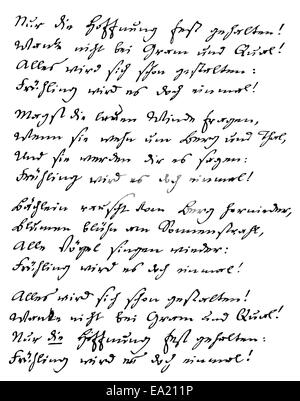 Nur die Hoffnung fest gehalten!
Wanke nicht bei Gram und Qual!
Alles wird sich schon gestalten:
Frühling wird es doch einmal!
Magst die lauen Winde fragen,
Wenn sie wehn um Berg und Thal,
Und sie werden dir es sagen:
Frühling wird es doch einmal!
Bächlein rauscht vom Berg hernieder,
Blumen blühn am Sonnenstrahl,
Alle Vögel singen wieder:
Frühling wird es doch einmal!
Alles wird sich schon gestalten!
Wanke nicht bei Gram und Qual!
Nur die Hoffnung fest gehalten:
Frühling wird es doch einmal!
alamy
EA211P